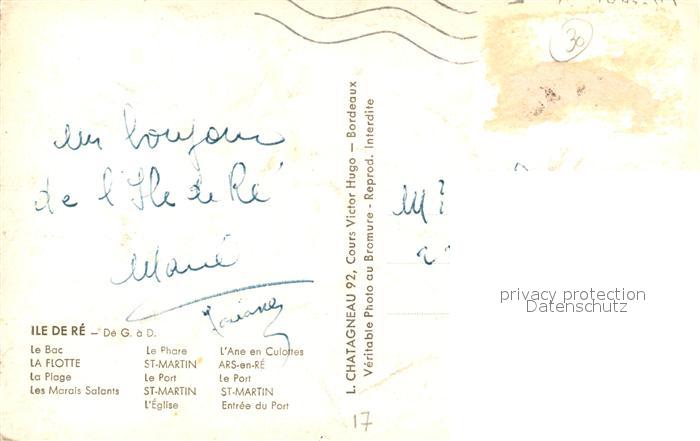 30
un bonjour
de l'Ile de Ré
Marié
M
ILE DE RÉ — De G. à D.
Le Bac Le Phare L'Ane en Culottes
LA FLOTTE ST-MARTIN ARS-en-RÉ
La Plage Le Port Le Port
Les Marais Salants ST-MARTIN ST-MARTIN
L'Église Entrée du Port
L. CHATAGNEAU 92, Cours Victor Hugo — Bordeaux
Véritable Photo au Bromure - Reprod. Interdite
17
privacy protection
Datenschutz